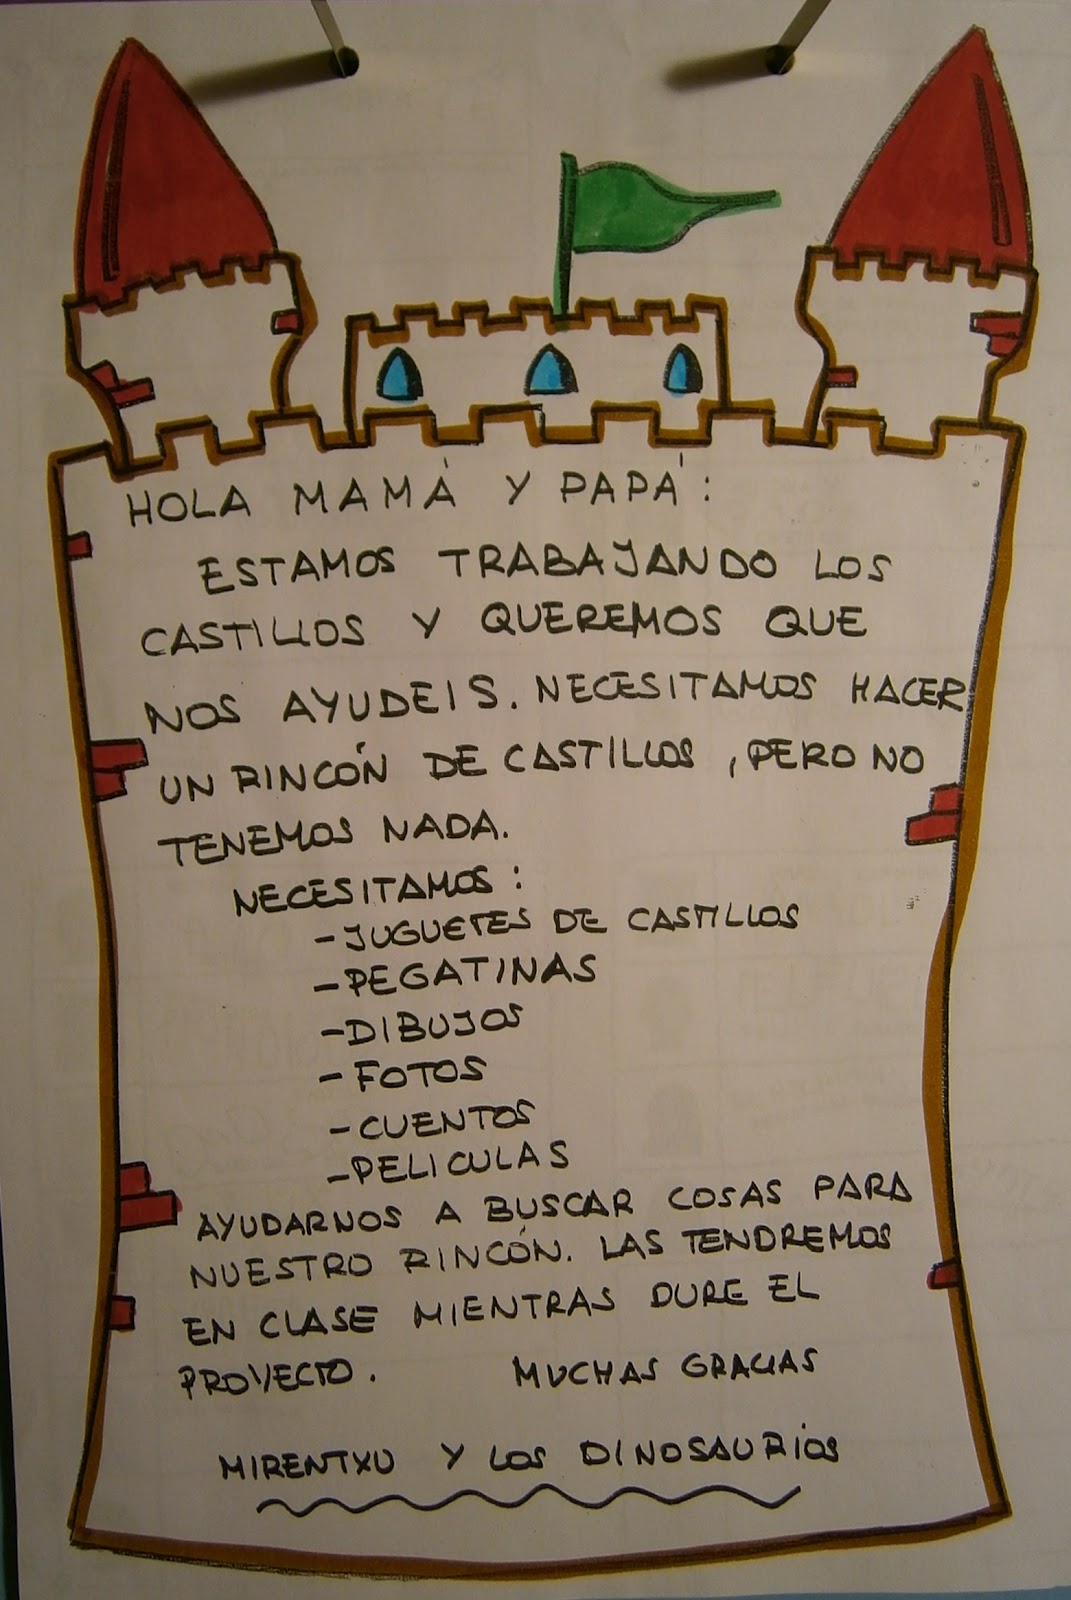 HOLA MAMÁ Y PAPÁ:
ESTAMOS TRABAJANDO LOS
CASTILLOS Y QUEREMOS QUE
NOS AYUDEIS. NECESITAMOS HACER
UN RINCÓN DE CASTILLOS, PERO NO
TENEMOS NADA.
NECESITAMOS:
-JUGUETES DE CASTILLOS
-PEGATINAS
-DIBUJOS
-FOTOS
-CUENTOS
-PELICULAS
AYUDARNOS A BUSCAR COSAS PARA
NUESTRO RINCÓN. LAS TENDREMOS
EN CLASE MIENTRAS DURE EL
PROYECTO. MUCHAS GRACIAS
MIRENTXU Y LOS DINOSAURIOS